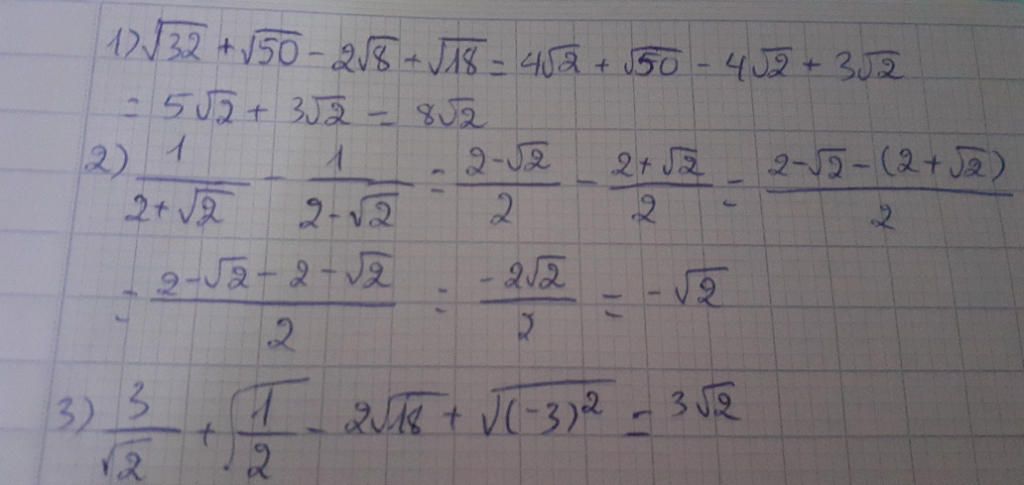 1) √32 + √50 - 2√8 + √18 = 4√2 + √50 - 4√2 + 3√2
= 5√2 + 3√2 = 8√2
2) 1/(2+√2) - 1/(2-√2) = (2-√2)/2 - (2+√2)/2 = (2-√2-(2+√2))/2
= (2-√2-2-√2)/2 = (-2√2)/2 = -√2
3) 3/√2 + √(1/2) - 2√18 + √((-3)²) = 3√2